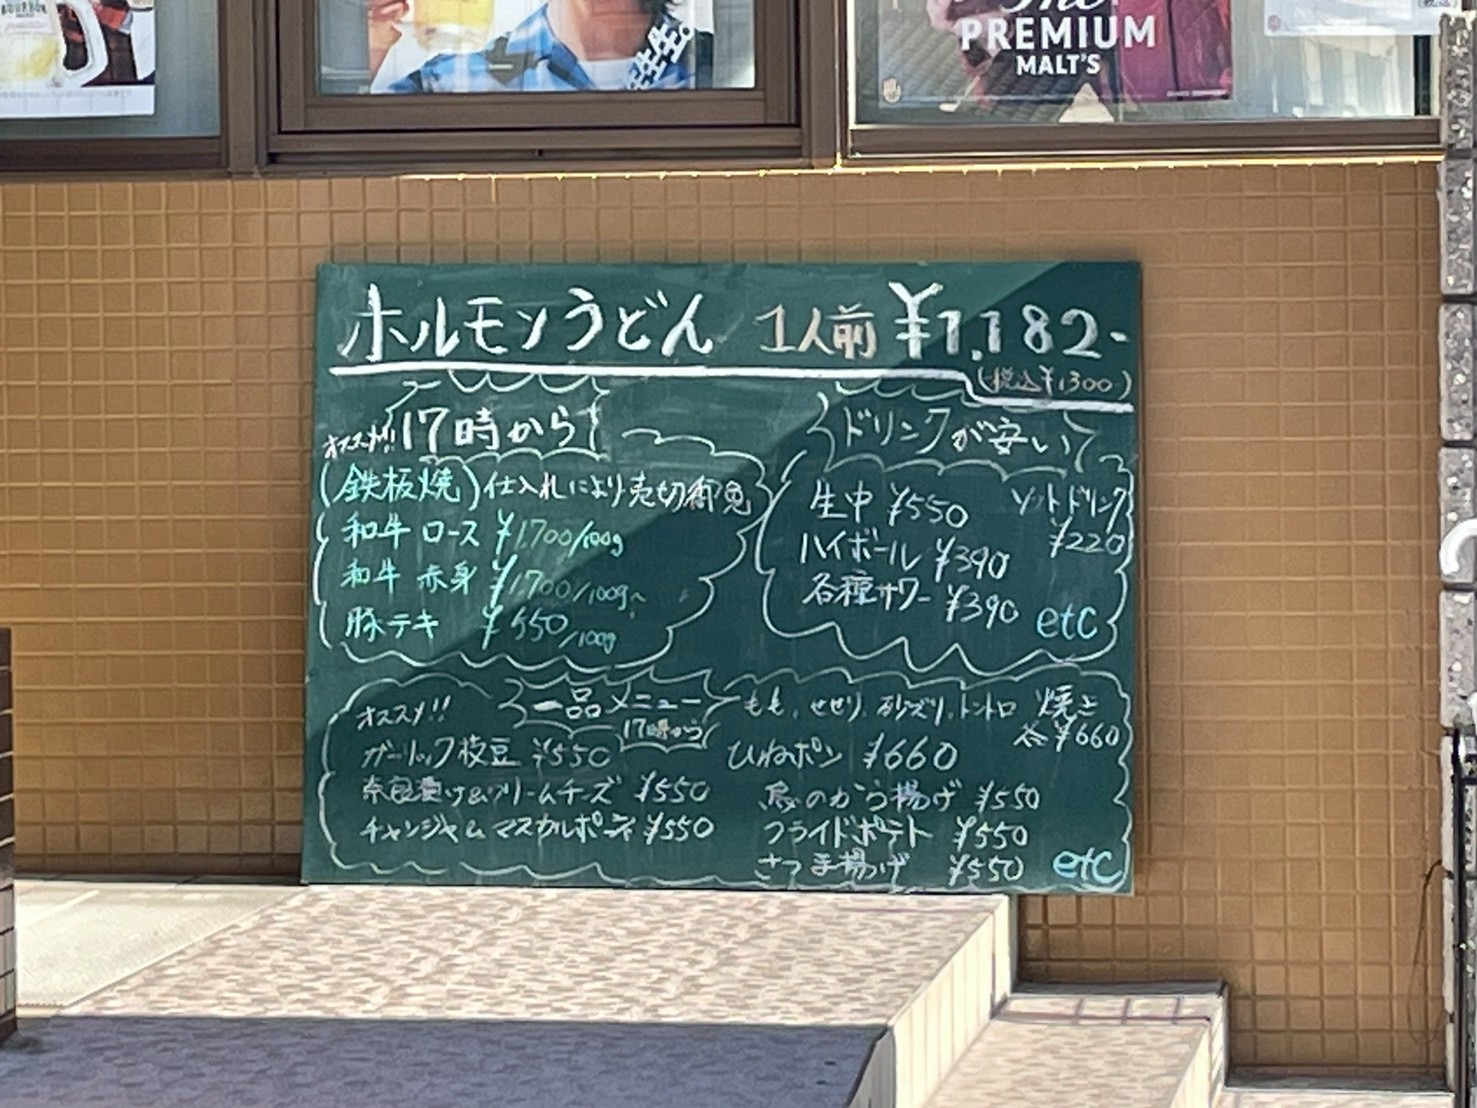 BOURBON
生生。
The
PREMIUM
MALT'S
ホルモンうどん 1人前 ¥1,182-
(税込¥1300)
オススメ!! 17時から
(鉄板焼) 仕入れにより売切御免
和牛 ロース ¥1,700/100g
和牛 赤身 ¥1,700/100g~
豚テキ ¥550/100g
ドリンクが安い
生中 ¥550
ハイボール ¥390
各種サワー ¥390
ソフトドリンク
¥220
etc
オススメ!! 一品メニュー
17時から
ガーリック枝豆 ¥550
奈良漬け&クリームチーズ ¥550
チャンジャ&マスカルポーネ ¥550
もも、せせり、砂ズリ、トントロ 焼き
各¥660
ひねポン ¥660
鳥のから揚げ ¥550
フライドポテト ¥550
さつま揚げ ¥550
etc